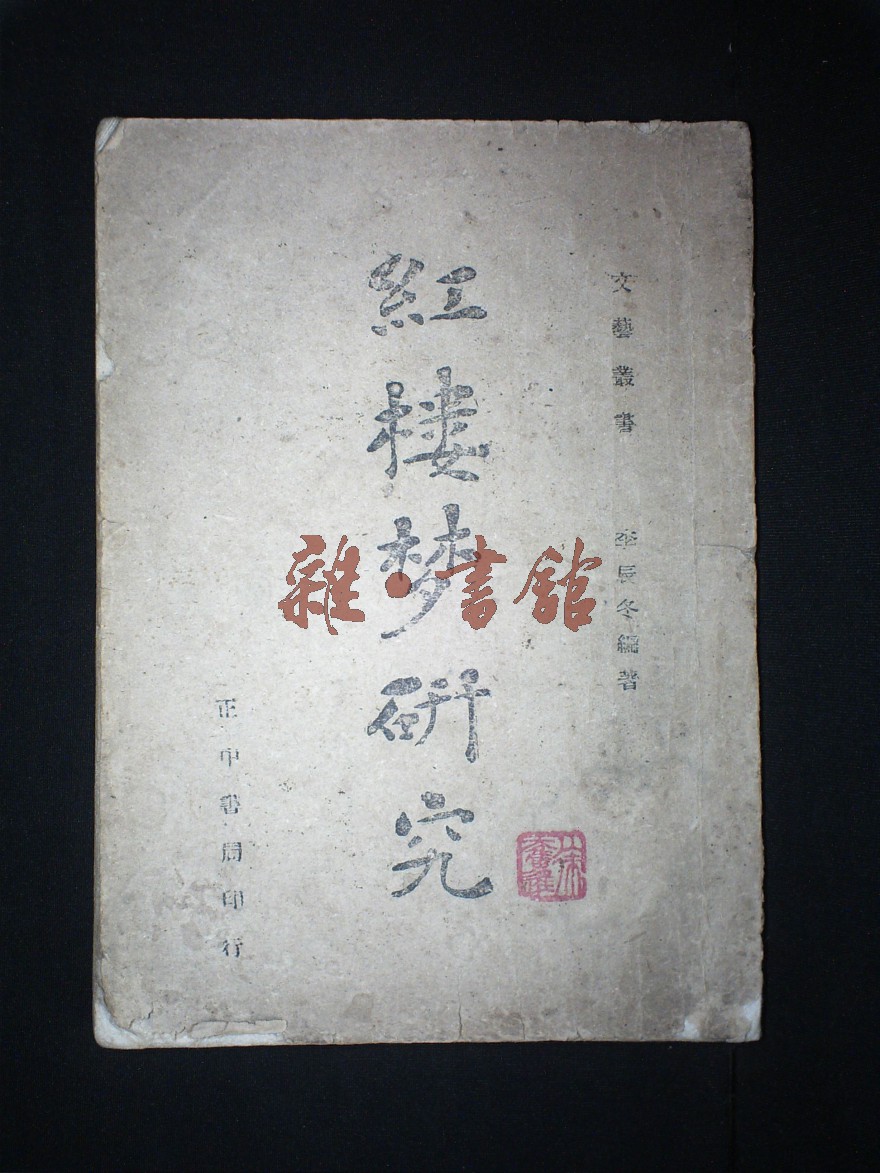 文藝叢書 李辰冬編著
紅楼梦研究
正中書局印行
雜·書館